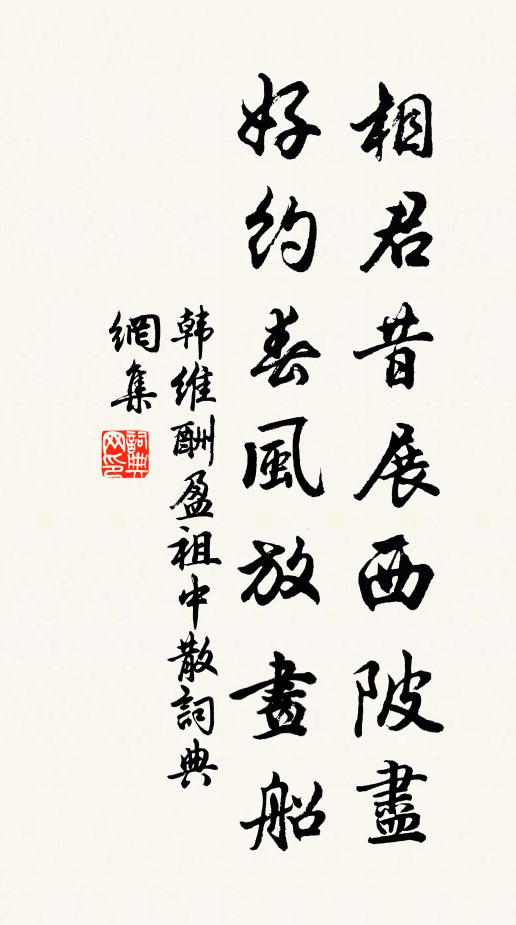 相君昔展西陂盡
好約春風放畫船
韩維酬盈祖中散詞典
網集
詞典网印